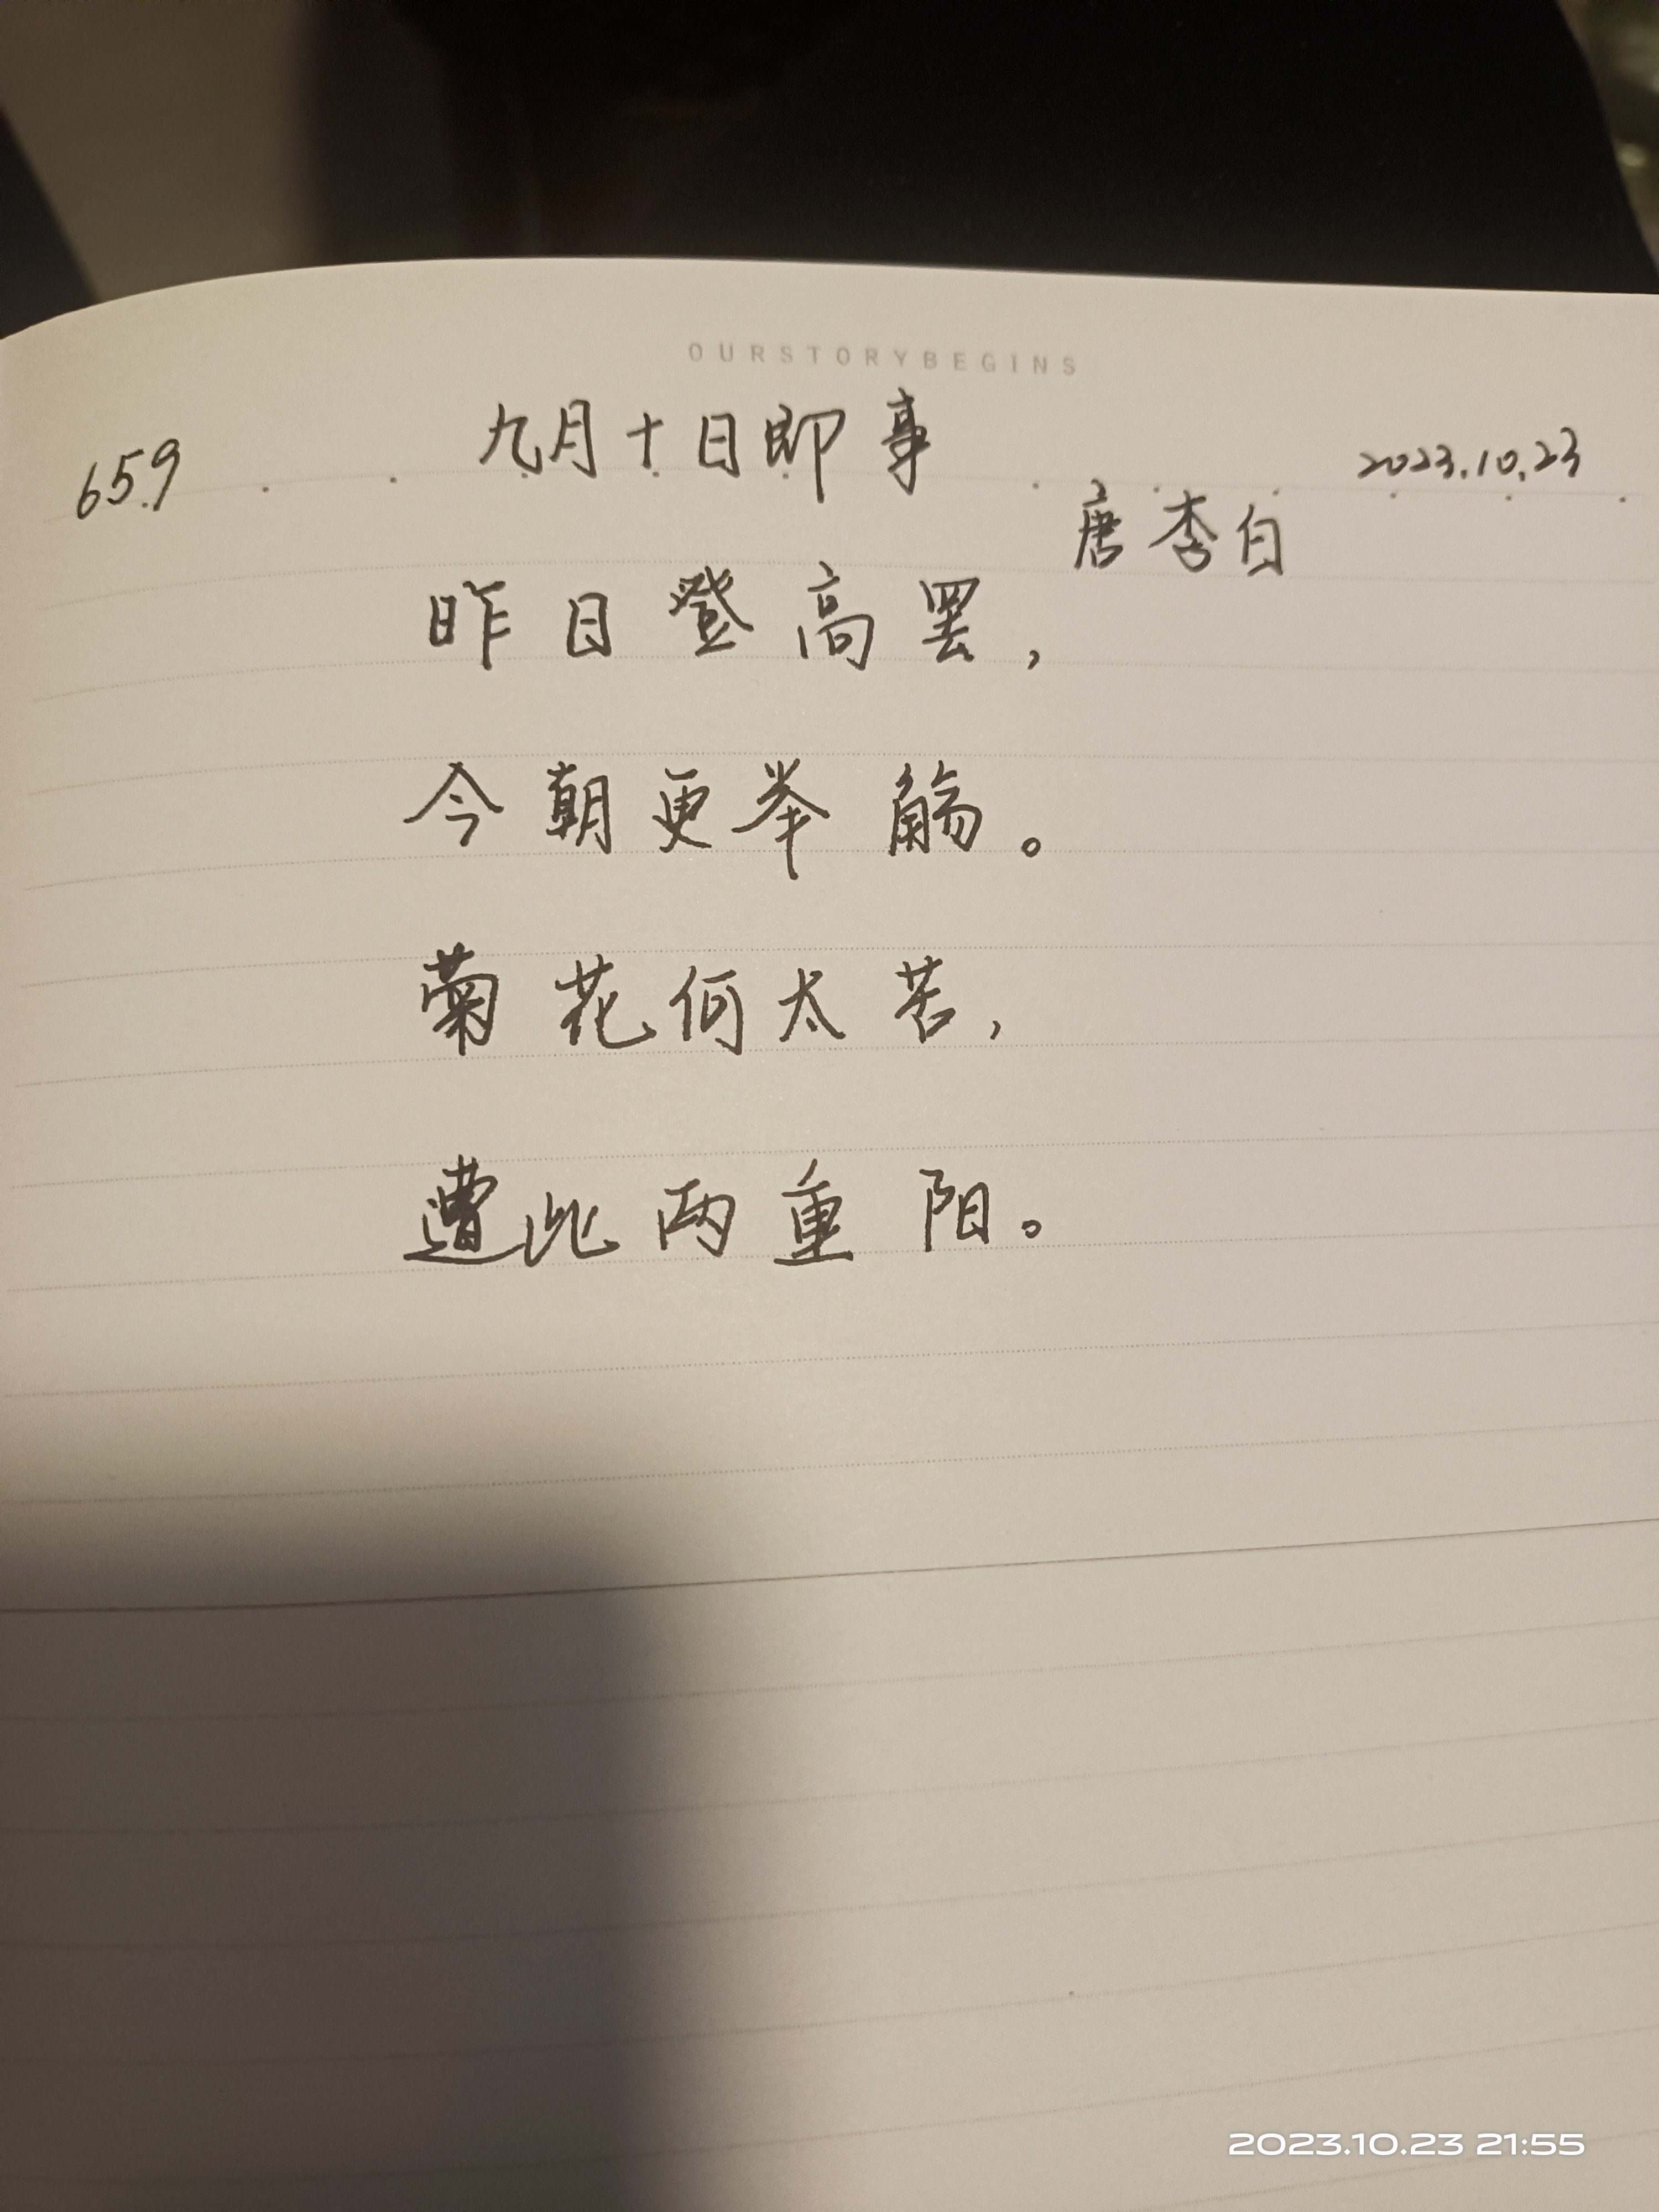 OURSTORYBEGINS
659 九月十日即事 2023.10.23
唐 李白
昨日登高罢，
今朝更举觞。
菊花何太苦，
遭此两重阳。
2023.10.23 21:55